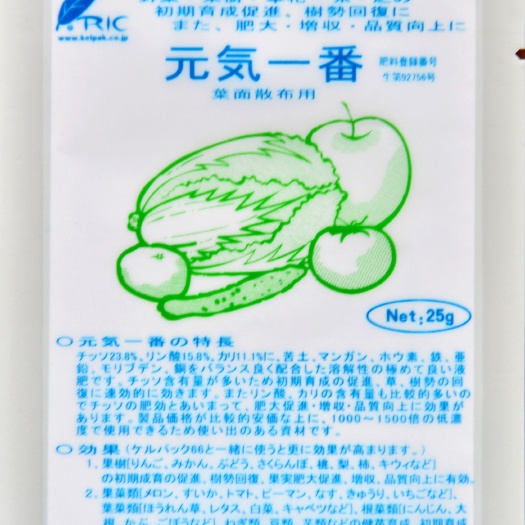 ARIC
www.kelpak.co.jp
初期育成促進、樹勢回復に
また、肥大・増収・品質向上に
元気一番
肥料登録番号
生第92756号
葉面散布用
Net:25g
○元気一番の特長
チッソ23.8%、リン酸15.8%、カリ11.1%に、苦土、マンガン、ホウ素、鉄、亜
鉛、モリブデン、銅をバランス良く配合した溶解性の極めて良い液
肥です。チッソ含有量が多いため初期育成の促進、草、樹勢の回
復に速効的に効きます。またリン酸、カリの含有量も比較的多いの
でチッソの肥効とあいまって、肥大促進・増収・品質向上に効果が
あります。製品価格が比較的安価な上に、1000~1500倍の低濃
度で使用できるため使い出のある資材です。
○効果(ケルパック66と一緒に使うと更に効果が高まります。)
1.果樹[りんご、みかん、ぶどう、さくらんぼ、桃、梨、柿、キウィなど]
の初期成育の促進、樹勢回復、果実肥大促進、増収、品質向上に有効。
2.果菜類[メロン、すいか、トマト、ピーマン、なす、きゅうり、いちごなど]、
葉菜類[ほうれん草、レタス、白菜、キャベツなど]、根菜類[にんじん、大
根、かぶ、ごぼうなど]、ねぎ類、豆類、芋類などの樹草育成、初期育